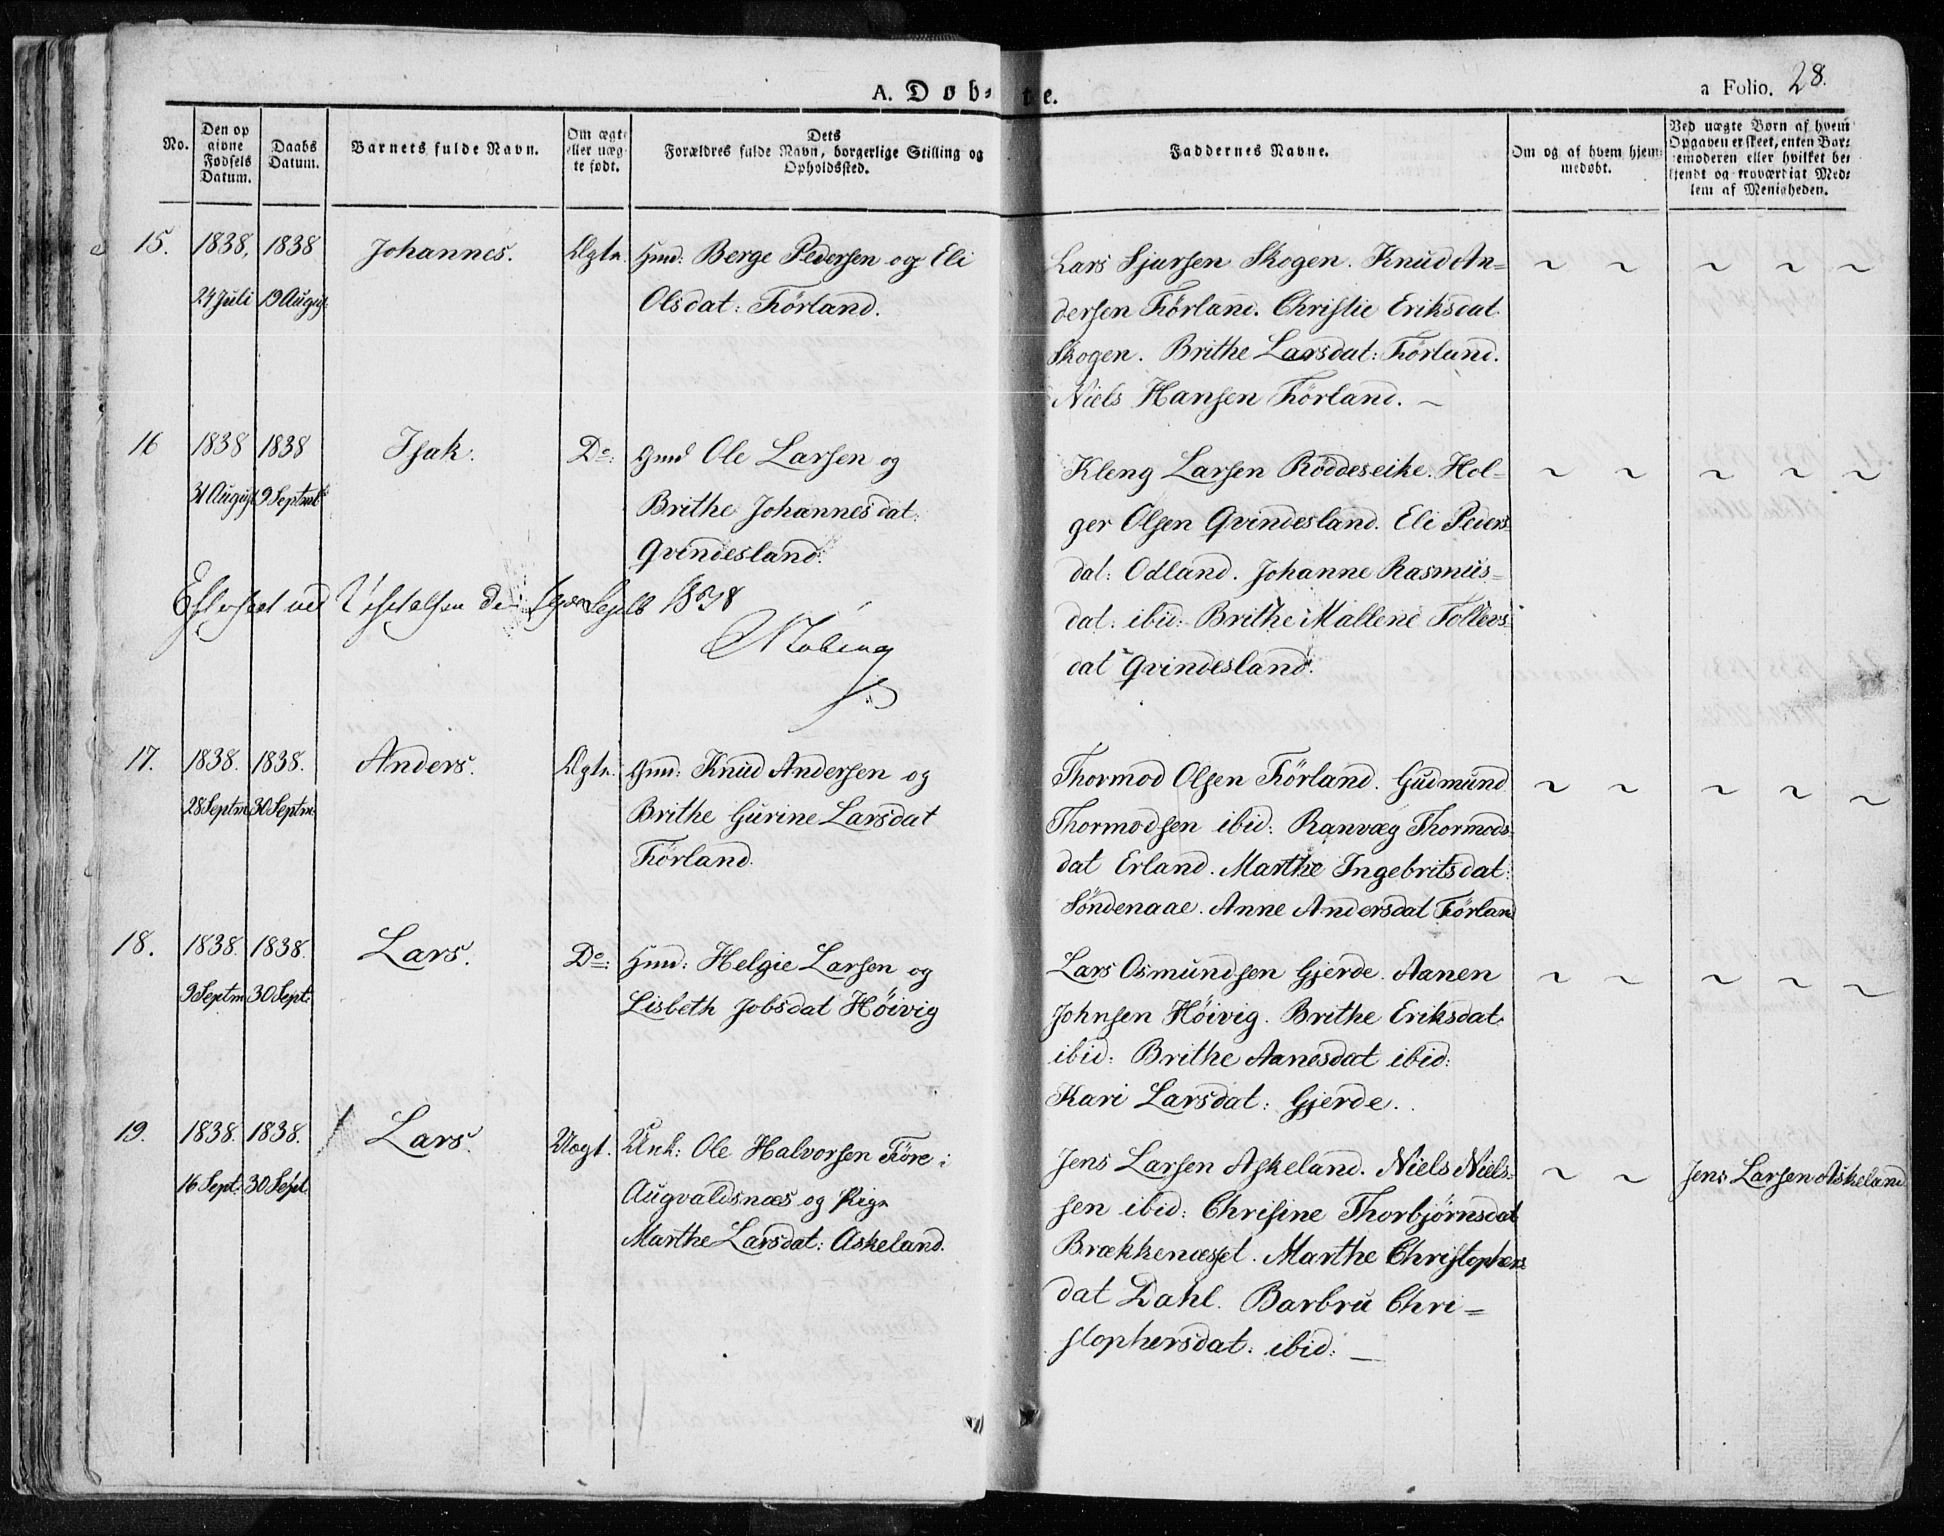 A. Døb- te.
a Folio. 28.
No.
Den op
givne
Fødsels
Datum.
Daabs
Datum.
Barnets fulde Navn.
Om ægte
eller uæg-
te født.
Dets
Forældres fulde Navn, borgerlige Stilling og
Opholdssted.
Faddernes Navne.
Om og af hvem hjem-
medøbt.
Ved uægte Børn af hvem
Opgaven er skeet, enten Bar-
nemoderen eller hvilket be-
kjendt og troværdigt Med-
lem af Menigheden.
15. 1838. 1838 Johannes. Ægte. Hmd: Berge Pedersen og Eli
24 Juli 19 August Olsdat: Førland.
Lars Sjursen Skogen. Knud An=
dersen Førland. Christie Eriksdat.
Skogen. Brithe Larsdat: Førland.
Niels Hansen Førland. ~
16 1838 1838 Isak. Do: Gmd Ole Larsen og
31 August 9 Septmb Brithe Johannesdat:
Qvindesland.
Kleng Larsen Røddeseike. Hol=
ger Olsen Qvindesland. Eli Peders
dat: Odland. Johanne Rasmus=
dat: ibid: Brithe Mallene Tollevs:
dat Qvindesland.
Efterseet ved Visitatsen den Septb 1838
17. 1838. 1838. Anders. Ægte. Gmd: Knud Andersen og
28 Septm 30 Septm. Brithe Gurine Larsdat
Førland.
Thormod Olsen Førland. Gudmund
Thormodsen ibid: Ranvæg Thormods=
dat Erland. Marthe Ingebritsdat:
Søndenaae. Anne Andersdat Førland
18. 1838. 1838. Lars. Do: Hmd: Helgie Larsen og
9 Septm 30 Sept. Lisbeth Jobsdat Høivig
Lars Osmundsen Gjerde. Aanen
Johnsen Høivig. Brithe Eriksdat.
ibid: Brithe Aanesdat ibid:
Kari Larsdat: Gjerde.
19. 1838. 1838. Lars. Uægt. Unk: Ole Halvorsen Føre i
16 Sept. 30 Sept. Augvaldsnæs og Pige
Marthe Larsdat: Askeland.
Jens Larsen Askeland. Niels Niels=
sen ibid: Christine Thorbjørnsdat
Brækkenæsset. Marthe Christophers
dat Dahl. Barbru Chri=
stophersdat: ibid: —
Jens Larsen Askeland